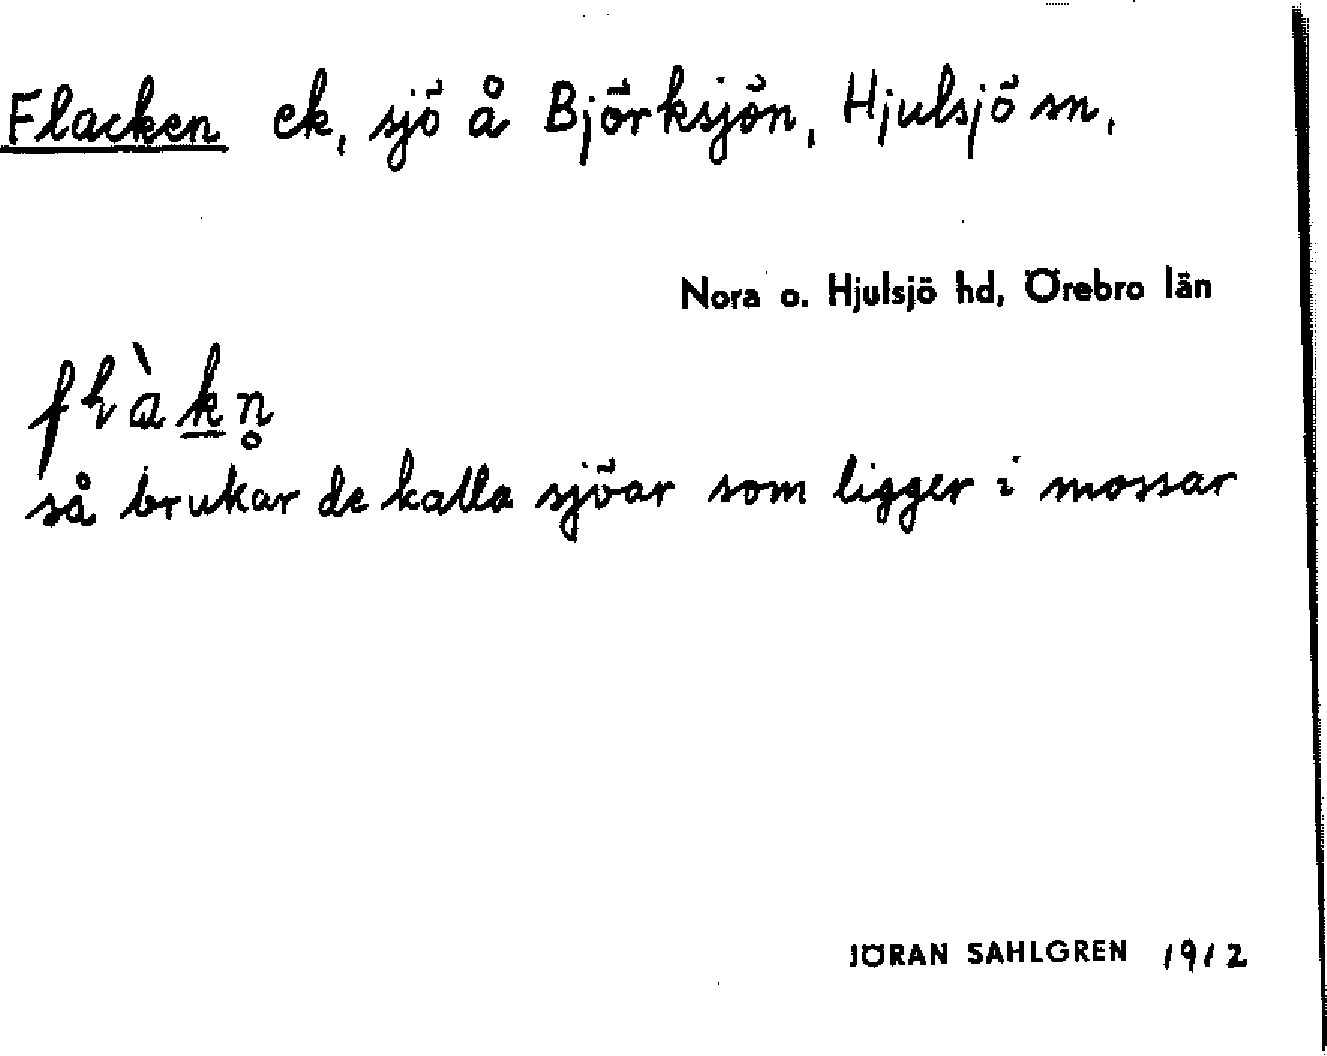 Flacken ek, sjö å Björksjön, Hjulsjö sn,
Nora o. Hjulsjö hd, Örebro län
så brukar de kalla sjöar som ligger i mossar
JÖRAN SAHLGREN 1912